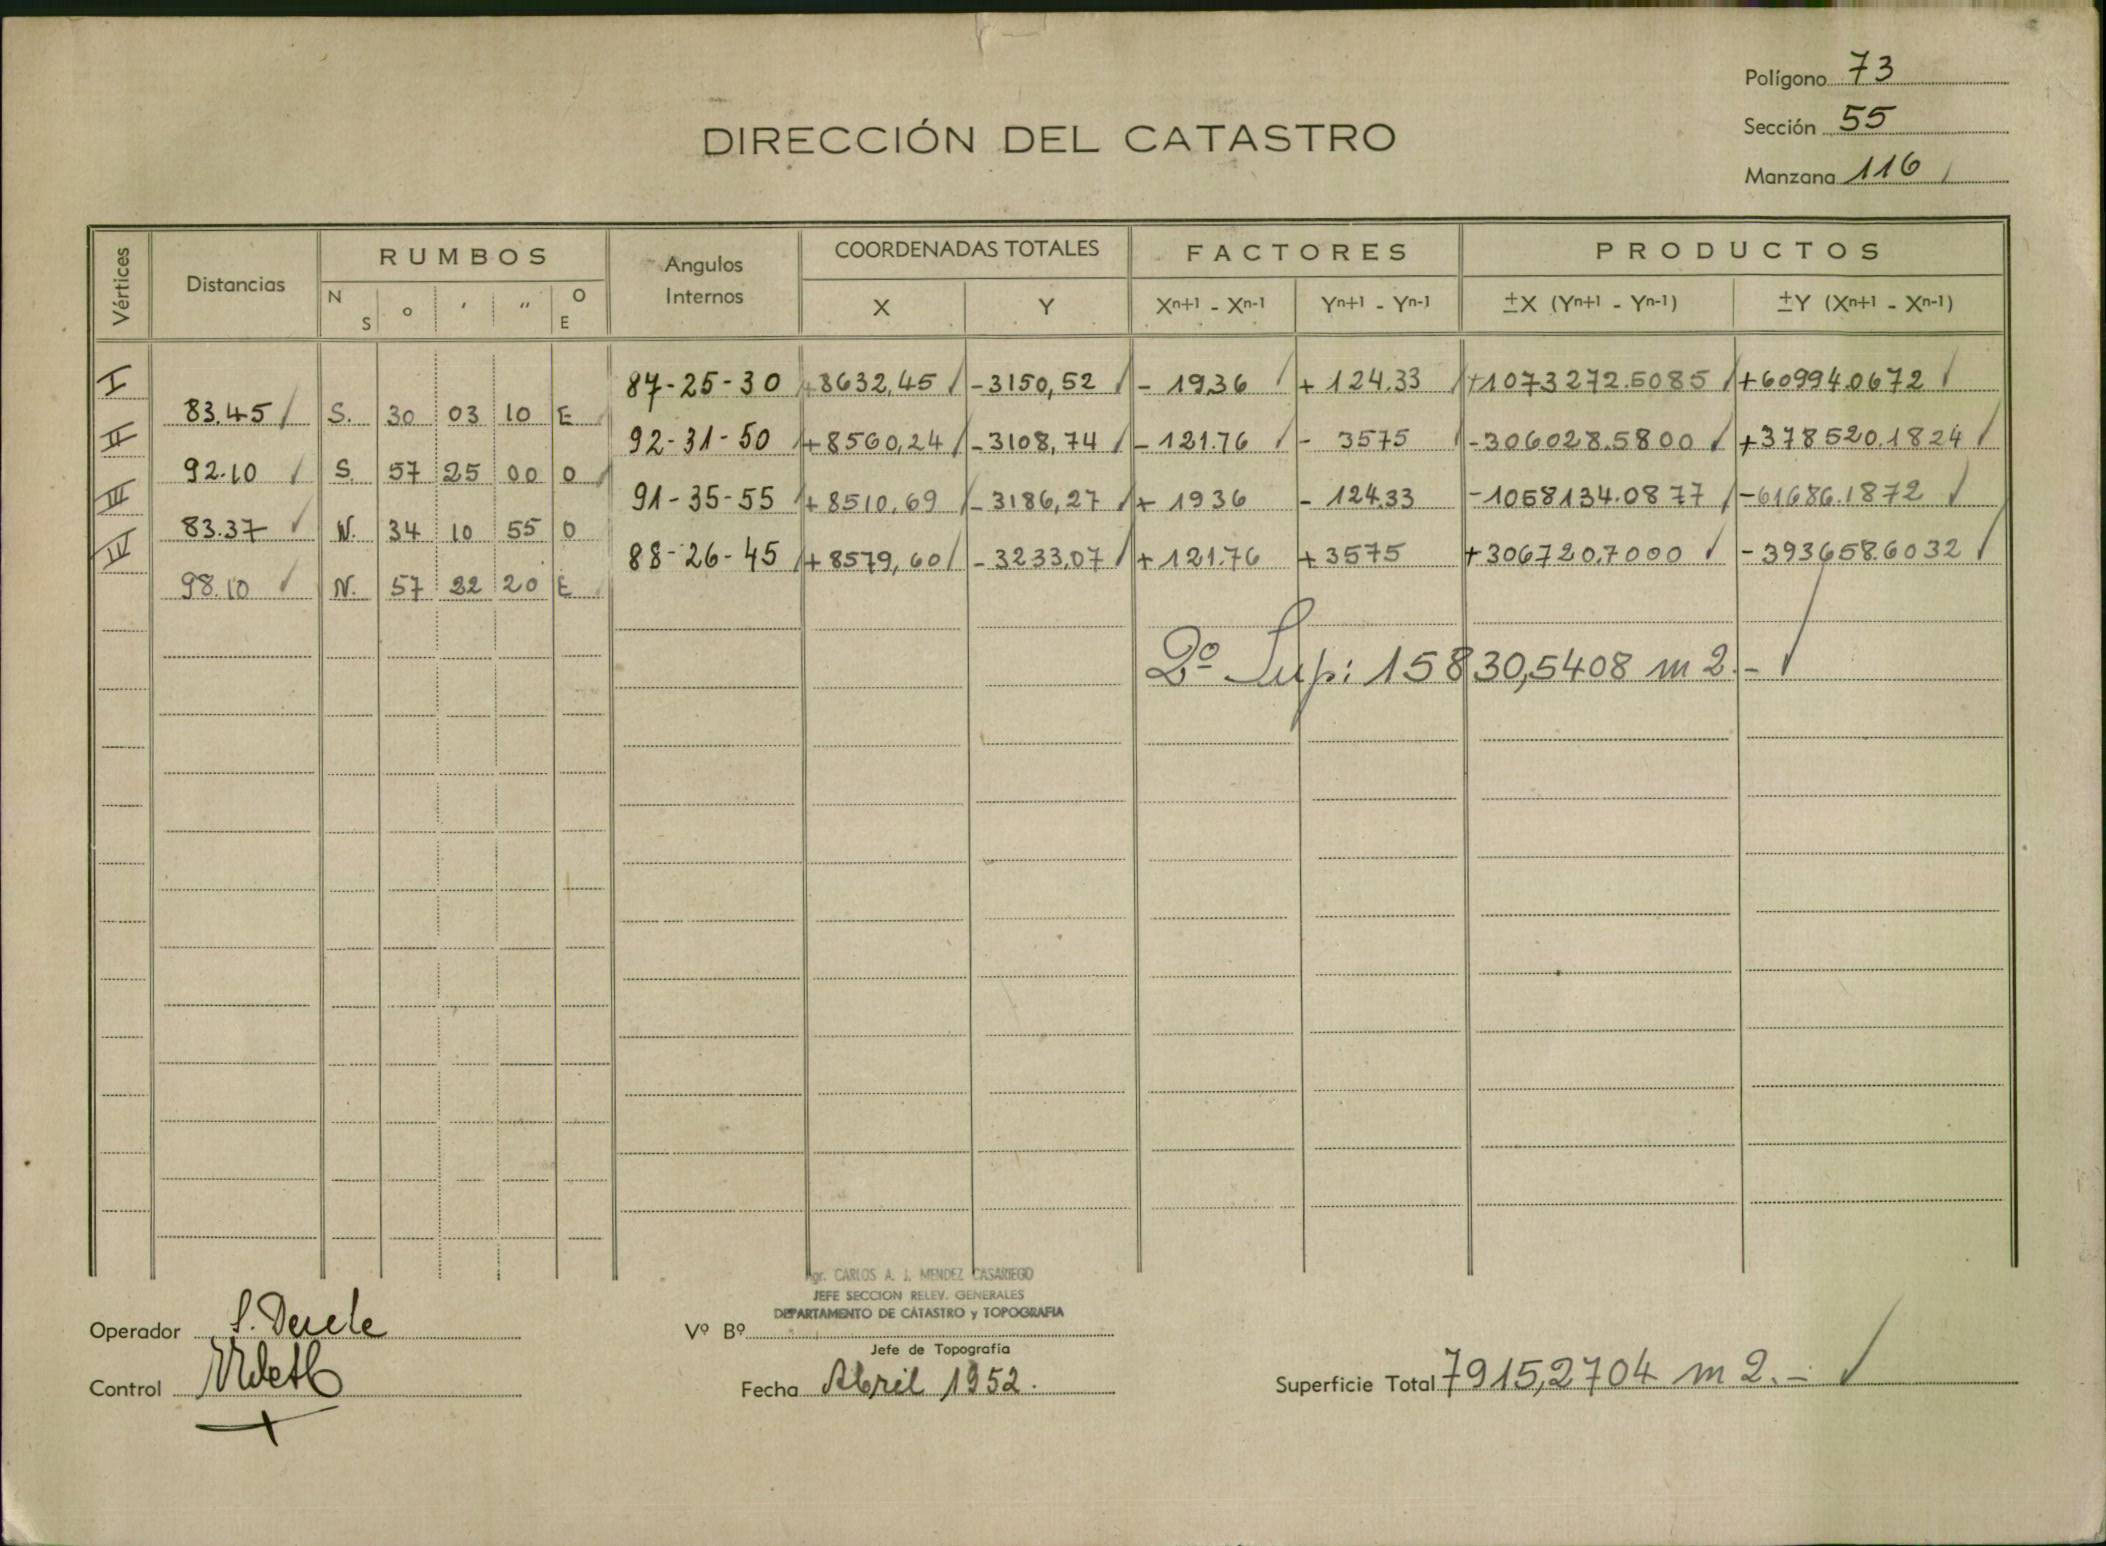 Polígono 73
Sección 55
Manzana 116
DIRECCIÓN DEL CATASTRO
Vértices Distancias RUMBOS Angulos Internos COORDENADAS TOTALES FACTORES PRODUCTOS
N S o ′ ″ O E X Y Xn+1 - Xn-1 Yn+1 - Yn-1 ±X (Yn+1 - Yn-1) ±Y (Xn+1 - Xn-1)
I 87-25-30 +8632,45 -3150,52 - 19.36 + 124.33 +1073272.5085 +60994.0672
83.45 S. 30 03 10 E
II 92-31-50 +8560,24 -3108,74 - 121.76 - 3575 -306028.5800 +378520.1824
92.10 S. 57 25 00 O
III 91-35-55 +8510,69 -3186,27 + 1936 - 124.33 -1058134.0877 -61686.1872
83.37 N. 34 10 55 O
IV 88-26-45 +8579,60 -3233,07 + 121.76 +3575 +306720.7000 -393658.6032
98.10 N. 57 22 20 E
2º Sup: 15830,5408 m2.-
Agr. CARLOS A. J. MENDEZ CASARIEGO
JEFE SECCION RELEV. GENERALES
DEPARTAMENTO DE CATASTRO y TOPOGRAFIA
Operador
Vº Bº
Jefe de Topografía
Control
Fecha Abril 1952.
Superficie Total 7915,2704 m2.-